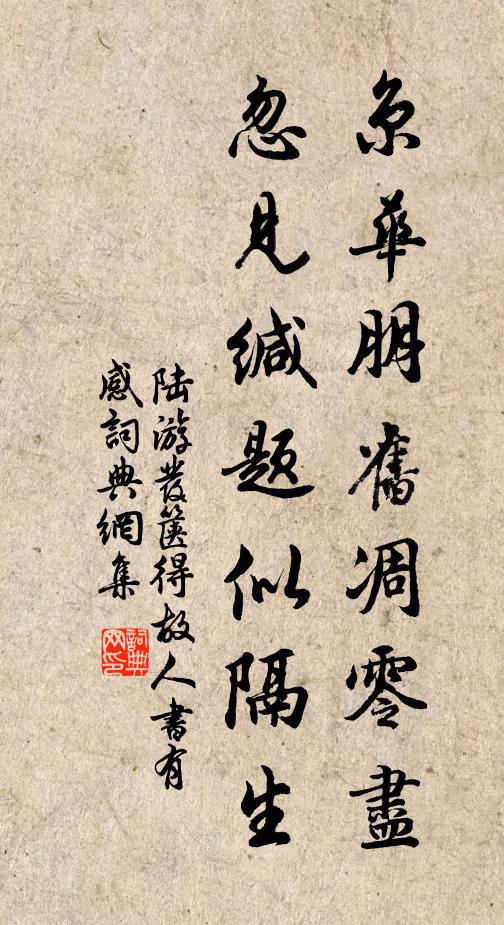 京華朋舊凋零盡
忽見緘題似隔生
陸游發篋得故人書有
感詞典網集
詞典
网印